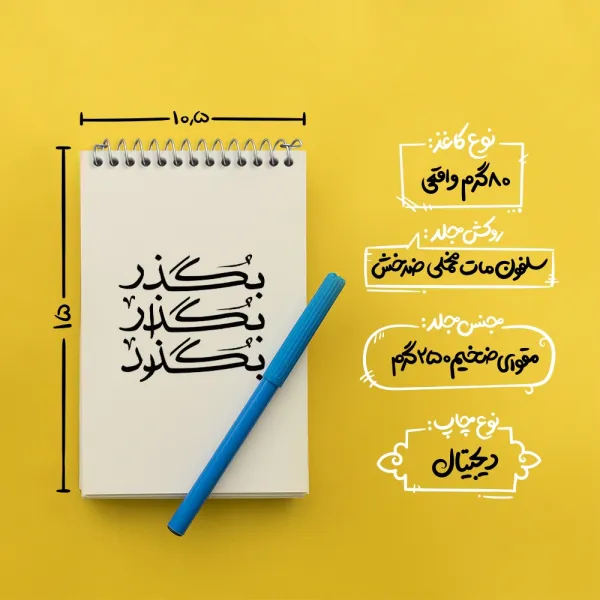 ۱۰٫۵
۱۵
بگذر
بگذار
بگذرد
نوع کاغذ:
۸۰گرم واقعی
روکش جلد:
سلفون مات مخملی ضدخش
جنس جلد:
مقوای ضخیم ۲۵۰گرم
نوع چاپ:
دیجیتال